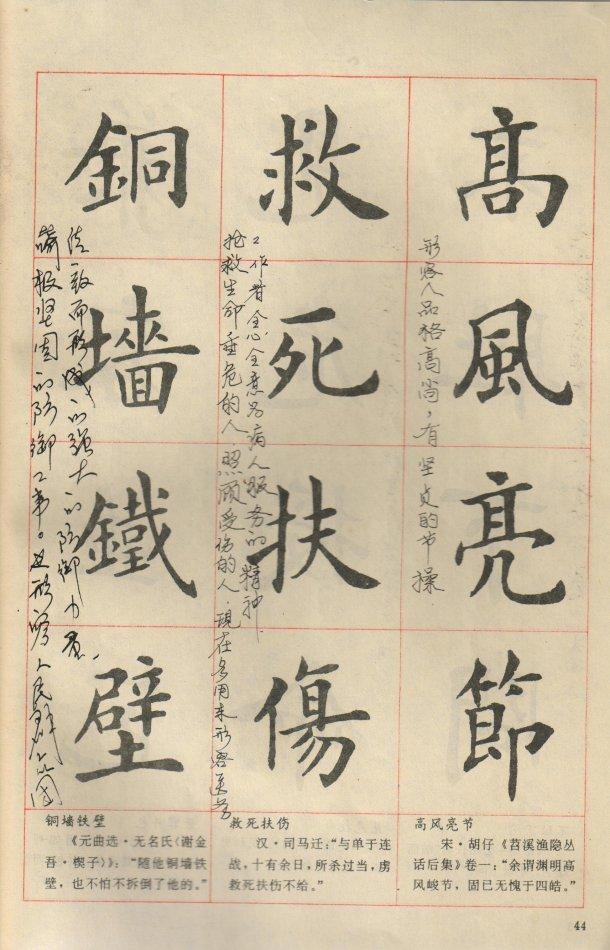 髙風亮節
形容人品格高尚，有坚贞的节操
救死扶傷
抢救生命垂危的人．照顾受伤的人．现在多用来形容医务
工作者全心全意为病人服务的精神．
銅墙鐵壁
极坚固的防御工事。也形容人民群众
一致而形成的强大的防御力量．
高风亮节
宋·胡仔《苕溪渔隐丛
话后集》卷一：“余谓渊明高
风峻节，固已无愧于四皓。”
救死扶伤
汉·司马迁：“与单于连
战，十有余日，所杀过当，虏
救死扶伤不给。”
铜墙铁壁
《元曲选·无名氏〈谢金
吾·楔子〉》：“随他铜墙铁
壁，也不怕不拆倒了他的。”
44